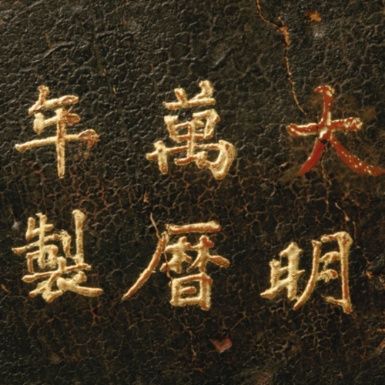 大明
萬曆
年製